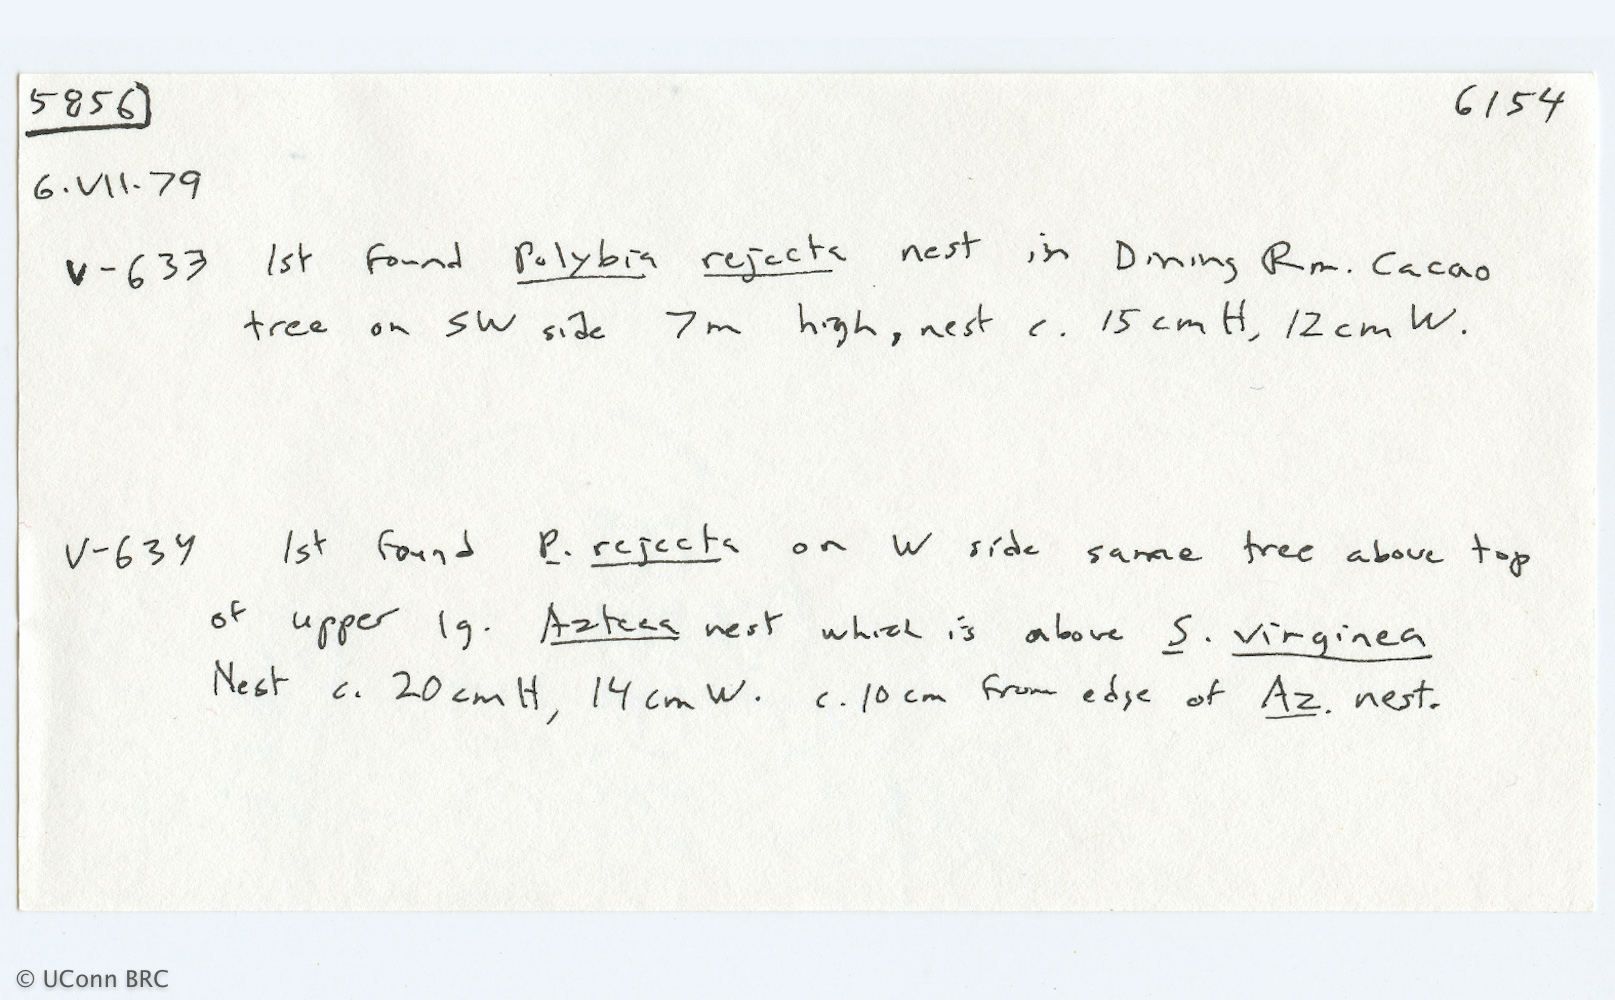 5856] 6154
6.VII.79
V-633 1st found Polybia rejecta nest in Dining Rm. Cacao
tree on SW side 7m high, nest c. 15cm H, 12cm W.
V-634 1st found P. rejecta on W side same tree above top
of upper lg. Azteca nest which is above S. virginea
Nest c. 20cm H, 14cm W. c. 10cm from edge of Az. nest.
© UConn BRC